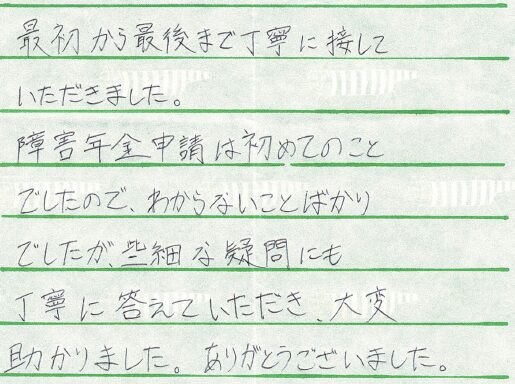 最初から最後まで丁寧に接して
いただきました。
障害年金申請は初めてのこと
でしたので、わからないことばかり
でしたが、些細な疑問にも
丁寧に答えていただき、大変
助かりました。ありがとうございました。